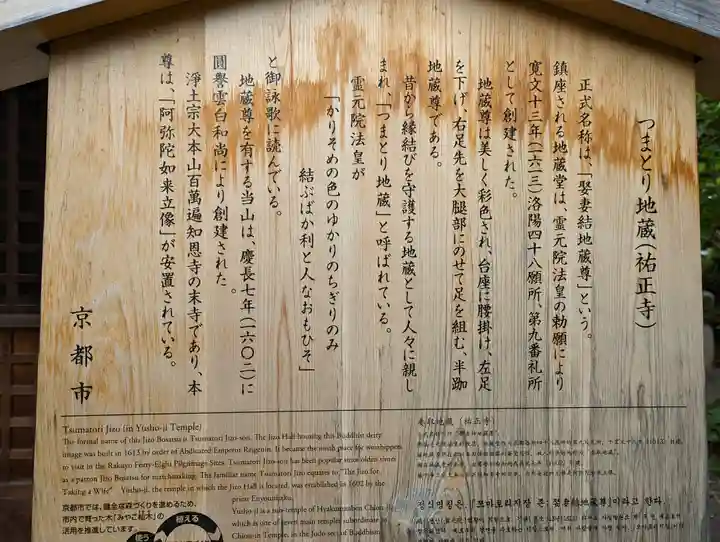 つまとり地蔵(祐正寺)
正式名称は、「娶妻結地蔵尊」という。
鎮座される地蔵堂は、霊元院法皇の勅願により
寛文十三年(一六一三)洛陽四十八願所、第九番札所
として創建された。
地蔵尊は美しく彩色され、台座に腰掛け、左足
を下げ、右足先を大腿部にのせて足を組む、半跏
地蔵尊である。
昔から縁結びを守護する地蔵として人々に親し
まれ「つまとり地蔵」と呼ばれている。
霊元院法皇が
「かりそめの色のゆかりのちぎりのみ
結ぶばか利と人なおもひそ」
と御詠歌に読んでいる。
地蔵尊を有する当山は、慶長七年(一六〇二)に
圓譽雲白和尚により創建された。
浄土宗大本山百萬遍知恩寺の末寺であり、本
尊は、「阿弥陀如来立像」が安置されている。
京都市
Tsumatori Jizo (in Yusho-ji Temple)
The formal name of this Jizo Bosatsu is Tsumatori Jizo-son. The Jizo Hall housing this Buddhist deity
image was built in 1613 by order of Abdicated Emperor Reigenin. It became the ninth place for worshippers
to visit in the Rakuyo Forty-Eight Pilgrimage Sites. Tsumatori Jizo-son has been popular since olden times
as a patron Jizo Bosatsu for matchmaking. The familiar name Tsumatori Jizo equates to "The Jizo for
Taking a Wife" Yusho-ji, the temple in which the Jizo Hall is located, was established in 1602 by the
priest Enyouunjaku.
Yusho-ji is a sub-temple of Hyakumanben Chion-ji
which is one of seven main temples subordinate to
Chion-in Temple, in the Jodo sect of Buddhism.
京都市では、健全な森づくりを進めるため、
市内で育った木「みやこ杣木」の
活用を推進しています。
植える
使う
娶取地蔵(祐正寺)